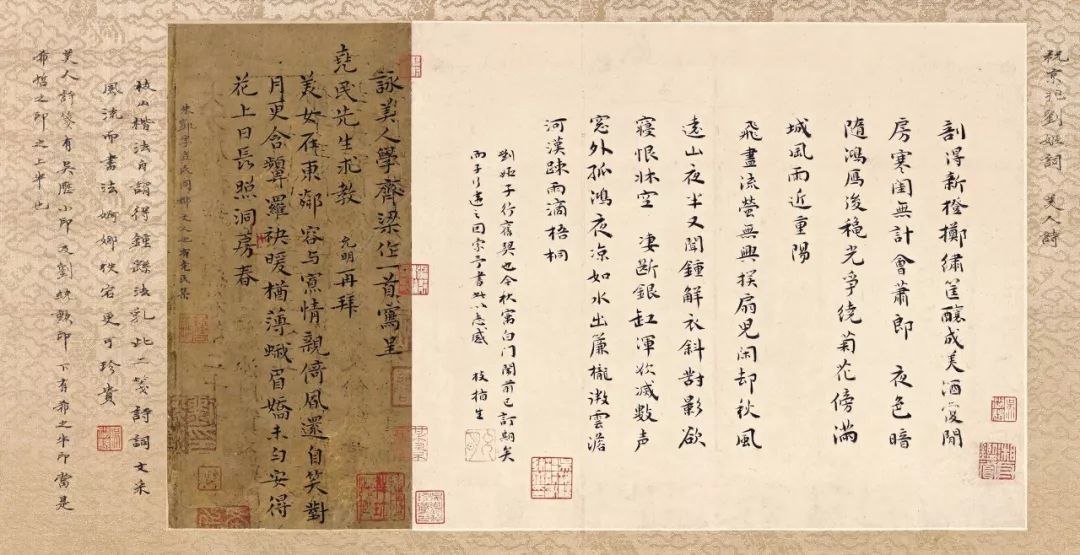 祝京兆劉姬詞 美人詩
剖得新橙擲繡筐釀成美酒復開
房寒閨無計會蕭郎 夜色暗
隨鴻雁後穐光爭繞菊花傍滿
城風雨近重陽
飛盡流螢無興撲扇兒閑却秋風
遠山夜半又聞鐘解衣斜對影欹
寢恨牀空 凄斷銀缸渾欲滅數声
窓外孤鴻夜凉如水出簾櫳微雲澹
河漢踈雨滴梧桐
劉姬子行舊契也今秋寓白门闈前已訂期矣
而子行遠之因 書此以志感 枝指生
詠美人學齊梁作一首寫呈
堯民先生求教 允明再拜
美女在東鄰容与寫情親倚風還自笑對
月更含顰羅袂暖猶薄蛾眉嬌未勻安得
花上日長照洞房春
朱 字堯民同鄉文人也有堯民集
枝山楷法自謂得鍾繇法乳此二箋詩詞文采
風流而書法婀娜秩宕更可珍貴
美人詩箋有吳歷小印及劉統勳印下有希之半印當是
希哲之印之上半也